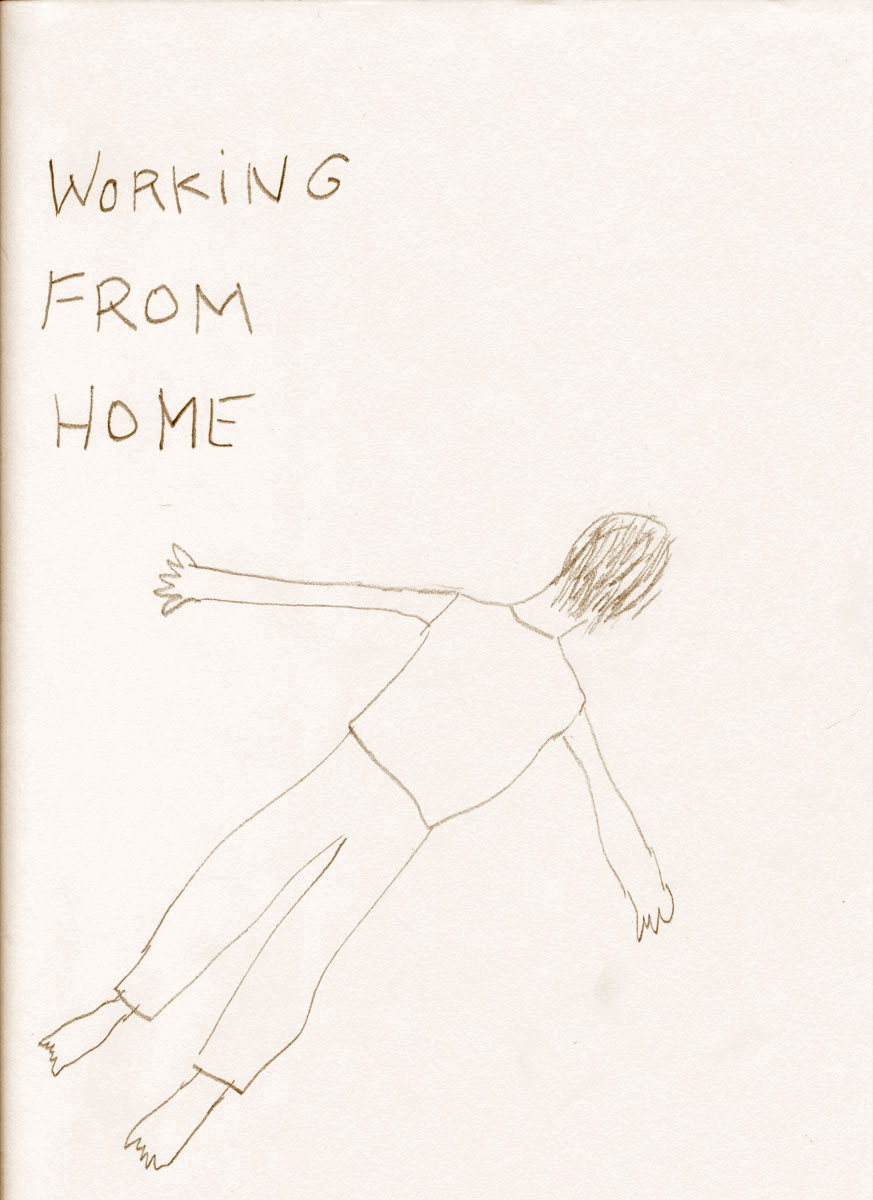 WORKiNG
FROM
HOME